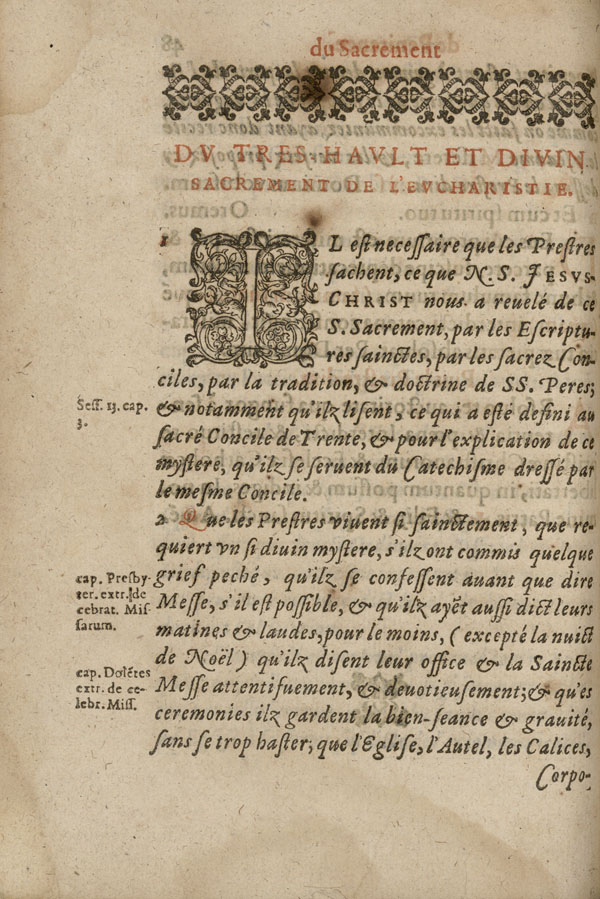 du Sacrement
DV TRES-HAVLT ET DIVIN
SACREMENT DE L'EVCHARISTIE.
1 IL eſt neceſſaire que les Preſtres
ſachent, ce que N. S. JESVS-
CHRIST nous a reuelé de ce
S. Sacrement, par les Eſcriptu-
res ſainctes, par les ſacrez Con-
ciles, par la tradition, & doctrine de SS. Peres;
Seſſ. 13. cap.
3.
& notamment qu'ilz liſent, ce qui a eſté defini au
ſacré Concile de Trente, & pour l'explication de ce
myſtere, qu'ilz ſe ſeruent du Catechiſme dreſſé par
le meſme Concile.
2 Que les Preſtres viuent ſi ſainctement, que re-
quiert vn ſi diuin myſtere, s'ilz ont commis quelque
cap. Presby-
ter. extr. de
celebrat. Miſ-
ſarum.
grief peché, qu'ilz ſe confeſſent auant que dire
Meſſe, s'il eſt poſſible, & qu'ilz ayẽt auſſi dict leurs
matines & laudes, pour le moins, (excepté la nuict
de Noël) qu'ilz diſent leur office & la Saincte
cap. Dolẽtes
extr. de ce-
lebr. Miſſ.
Meſſe attentifuement, & deuotieuſement; & qu'es
ceremonies ilz gardent la bien-ſeance & grauité,
ſans ſe trop haſter; que l'Egliſe, l'Autel, les Calices,
Corpo-